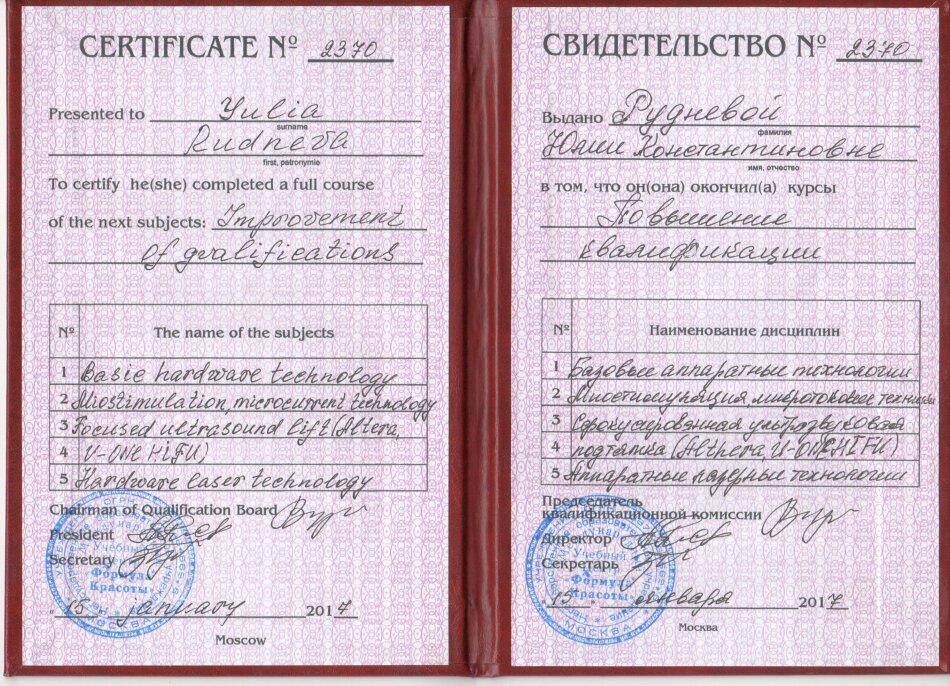 CERTIFICATE № 2370
Presented to Yulia
surname
Rudneva
first, patronymie
To certify he(she) completed a full course
of the next subjects: Improovement
of gvalifications
№ The name of the subjects
1 Basic hardware technology
2 Miostimulation, microcurrent technology
3 Focused ultrasound lift (Altera,
4 V-ONE HIFU)
5 Hardware laser technology
Chairman of Qualification Board
President
Secretary
Учебный
"Формула
Красоты"
МОСКВА
"15" january 2017
Moscow
СВИДЕТЕЛЬСТВО № 2370
Выдано Рудневой
фамилия
Юлии Константиновне
имя, отчество
в том, что он(она) окончил(а) курсы
Повышение
квалификации
№ Наименование дисциплин
1 Базовые аппаратные технологии
2 Миостимуляция, микротоковое
3 Сфокусированная ультразвуковая
4 подтяжка (Althera, U-ONE HIFU)
5 Аппаратные лазерные технологии
Председатель
квалификационной комиссии
Директор
Секретарь
Учебный
"Формула
Красоты"
МОСКВА
"15" января 2017
Москва